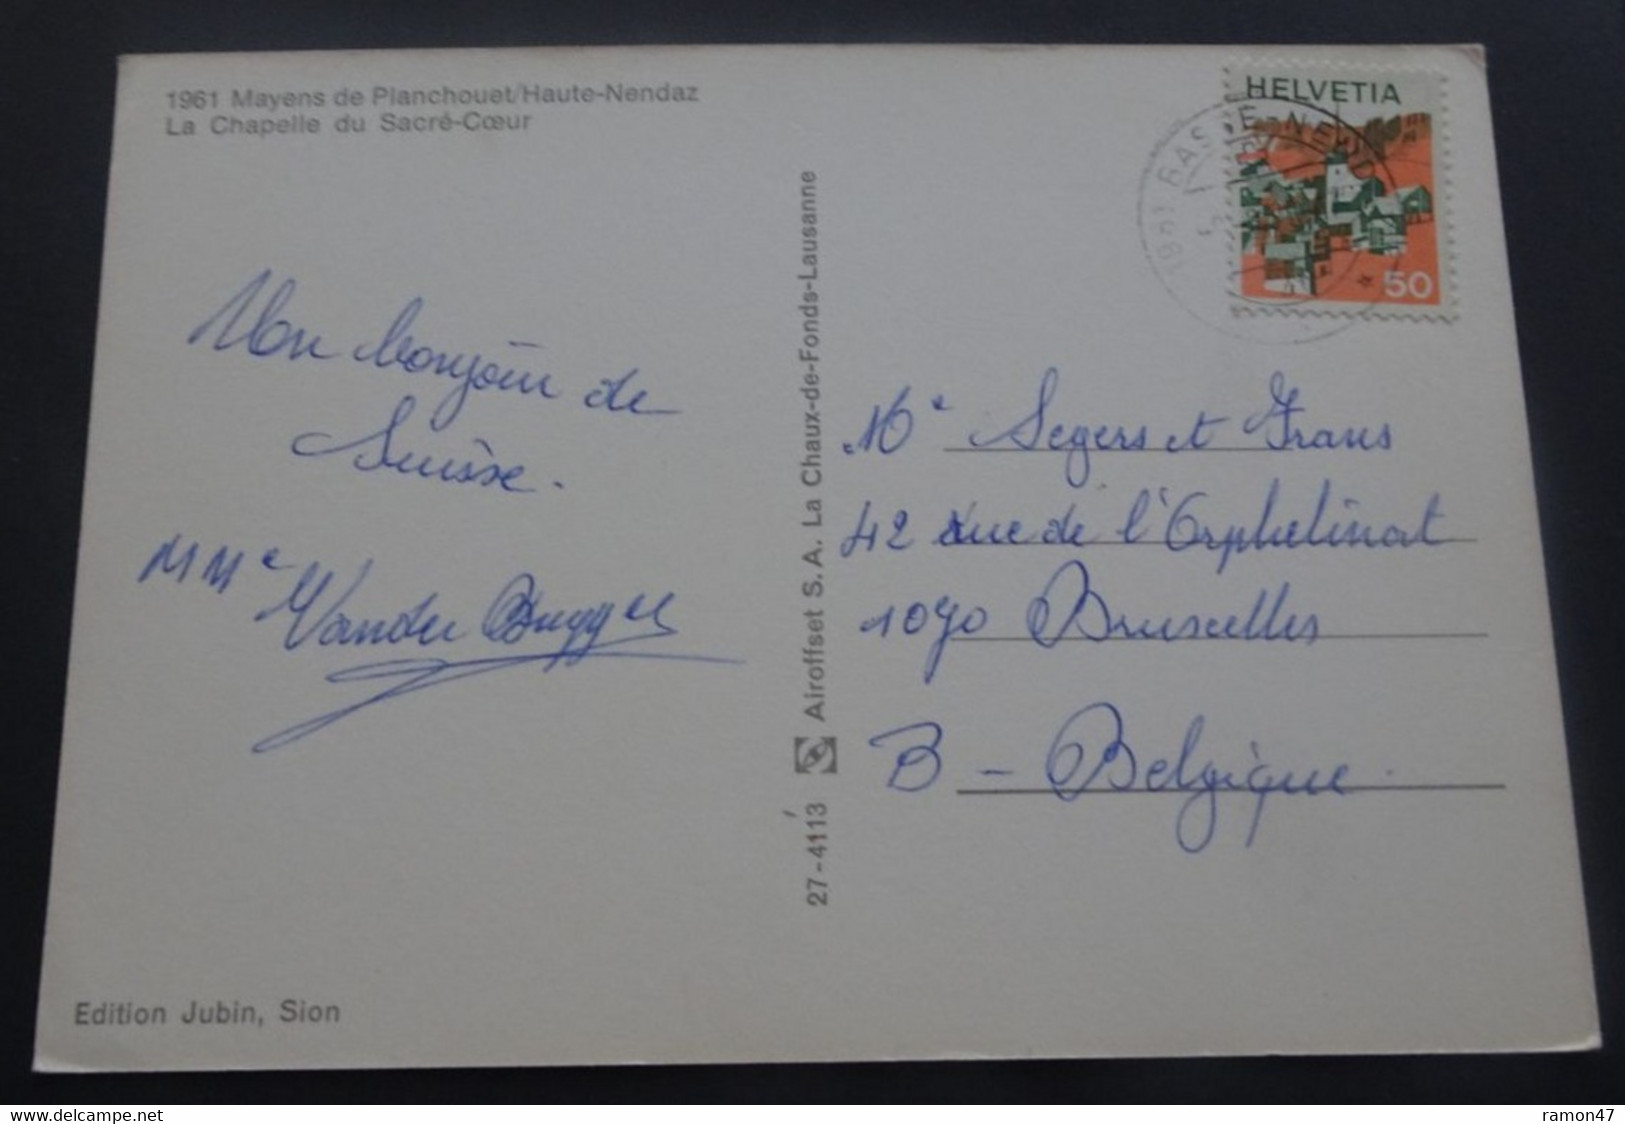 1961 Mayens de Planchouet/Haute-Nendaz
La Chapelle du Sacré-Cœur
HELVETIA
50
1961 BASSE-NENDAZ
Mon bonjour de
Suisse.
MMe
Vander Bruggen
Edition Jubin, Sion
27-4113 Airoffset S.A. La Chaux-de-Fonds-Lausanne
Me Segers et Frans
42 rue de l'Orphelinat
1070 Bruxelles
B - Belgique.
www.delcampe.net
ramon47